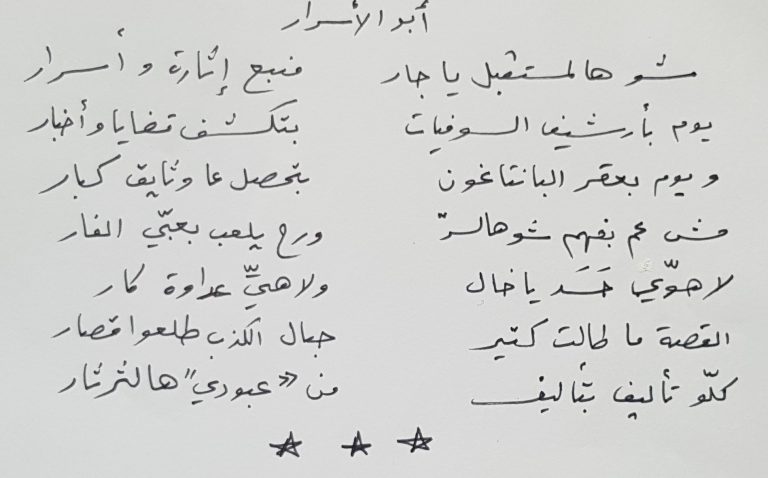 أبو الأسرار
شو هالمستقبل يا جار منبع إثارة و أسرار
يوم بأرشيف السوفيات بتكشف قضايا و أخبار
و يوم بعقر البانتاغون بتحصل عا وثايق كبار
مش عم بفهم شو هالسرّ ورح يلعب بعبّي الفار
لا هوّي حَسَد يا خال ولا هيِّ عداوة كار
القصة ما طالت كتير حبال الكذب طلعوا قصار
كلّو تأليف بتأليف من «عبودي" هالثرثار